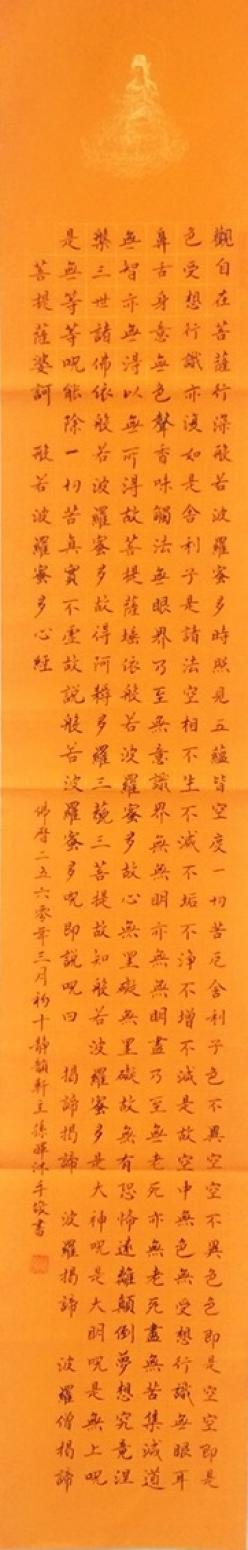 觀自在菩薩行深般若波羅蜜多時照見五蘊皆空度一切苦厄舍利子色不異空空不異色色即是空空即是
色受想行識亦復如是舍利子是諸法空相不生不滅不垢不淨不增不減是故空中無色無受想行識無眼耳
鼻舌身意無色聲香味觸法無眼界乃至無意識界無無明亦無無明盡乃至無老死亦無老死盡無苦集滅道
無智亦無得以無所得故菩提薩埵依般若波羅蜜多故心無罣礙無罣礙故無有恐怖遠離顛倒夢想究竟涅
槃三世諸佛依般若波羅蜜多故得阿耨多羅三藐三菩提故知般若波羅蜜多是大神呪是大明呪是無上呪
是無等等呪能除一切苦真實不虛故説般若波羅蜜多呪即説呪曰 揭諦揭諦 波羅揭諦 波羅僧揭諦
菩提薩婆訶 般若波羅蜜多心經
佛曆二五六零年三月初十靜韻軒主孫暉沐手敬書